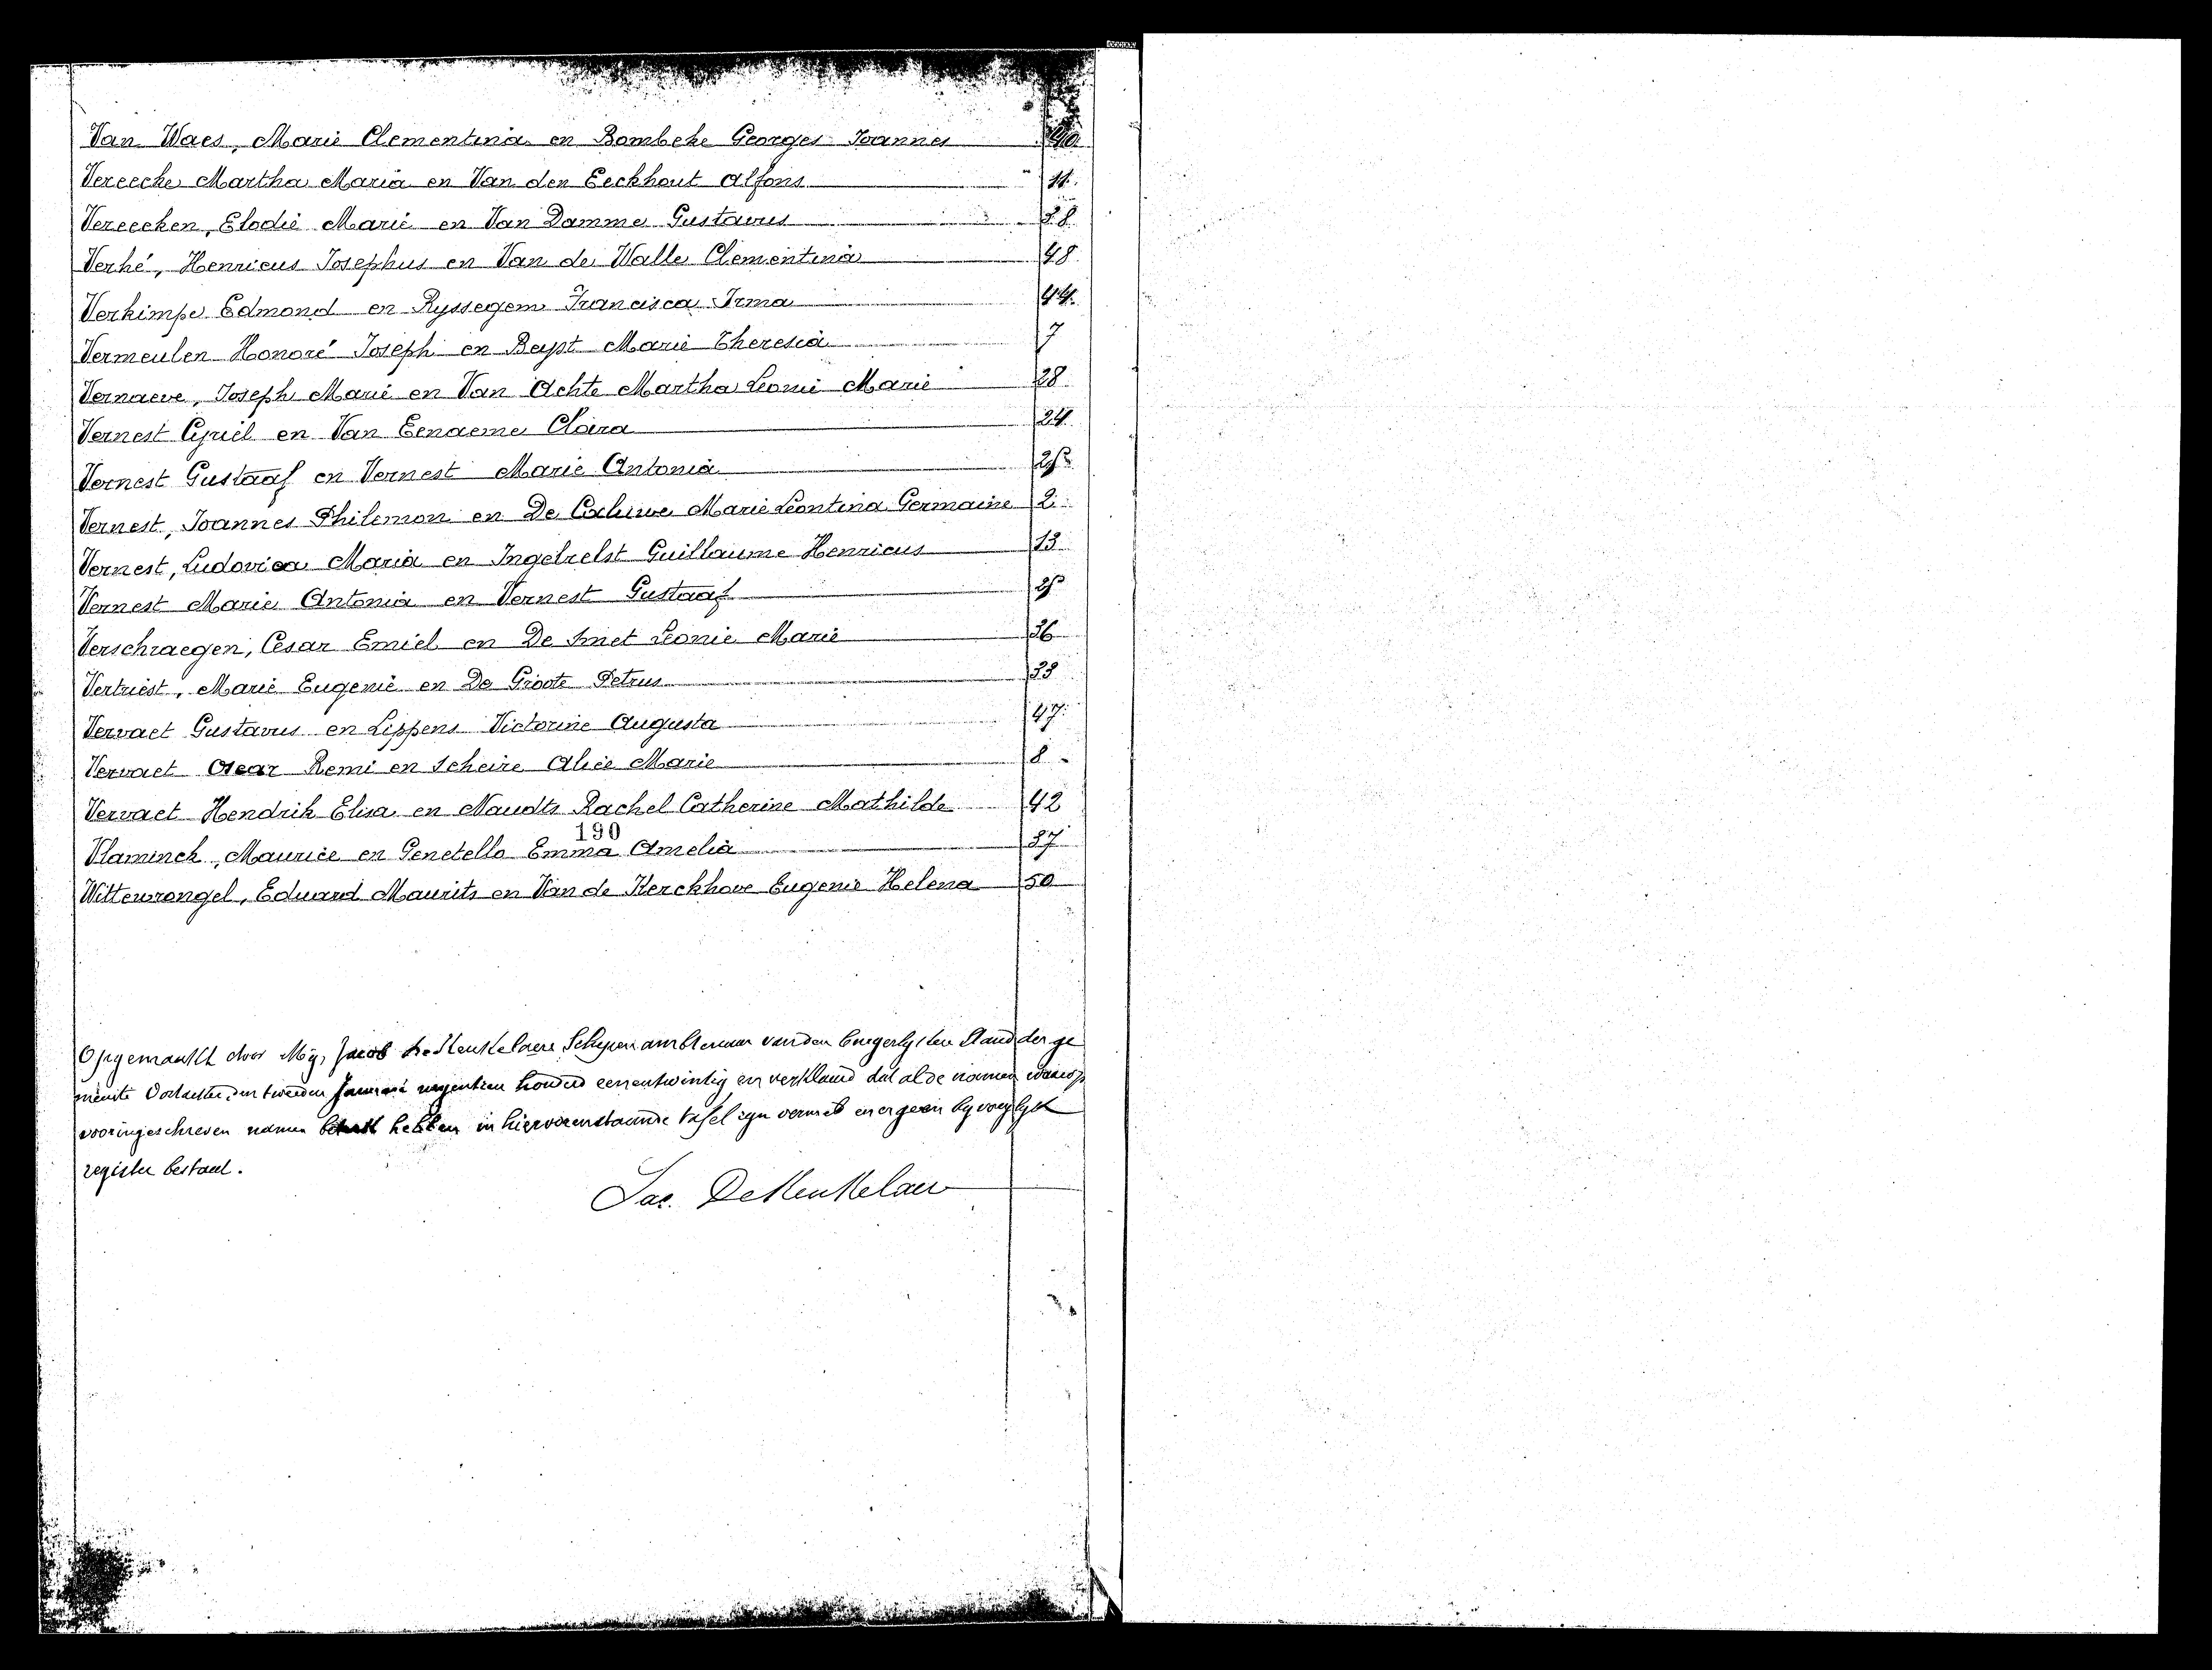 Van Waes, Marie Clementina en Bombeke Georges Joannes 40
Vereecke Martha Maria en Van den Eeckhout Alfons 11
Vereecken, Elodie Marie en Van Damme Gustavus 38
Verhé, Henricus Josephus en Van de Walle Clementina 48
Verkimpe Edmond en Ryssegem Francisca Irma 44
Vermeulen Honoré Joseph en Beyst Marie Theresia 7
Vernaeve, Joseph Marie en Van Achte Martha Leonie Marie 28
Vernest Cyriel en Van Eenaeme Clara 24
Vernest Gustaaf en Vernest Marie Antonia
Vernest, Joannes Philemon en De Caluwe Marie Leontina Germaine 2
Vernest, Ludovica Maria en Ingelrelst Guillaume Henricus 13
Vernest Marie Antonia en Vernest Gustaaf
Verschraegen, Cesar Emiel en De Smet Leonie Marie 36
Vertriest, Marie Eugenie en De Groote Petrus 33
Vervaet Gustavus en Lippens Victorine Augusta 47
Vervaet Oscar Remi en Scheire Alice Marie 8
Vervaet Hendrik Elisa en Naudts Rachel Catherine Mathilde 42
190
Vlaminck, Maurice en Genetello Emma Amelia 37
Wittewrongel, Eduard Maurits en Van de Kerckhove Eugenie Helena 50
Opgemaakt door Mij, Jacob De Keukelaere Schepen ambtenaar van den burgerlyken Stand der ge
meente Oostacker, den tweeden Januari negentien honderd eenentwintig en verklaard dat al de namen
vooringeschreven namen hebben in hiervorenstaande tafel zyn vermeld en er geen byvoeglyk
register bestaat.
Jac. DeKeukelaere